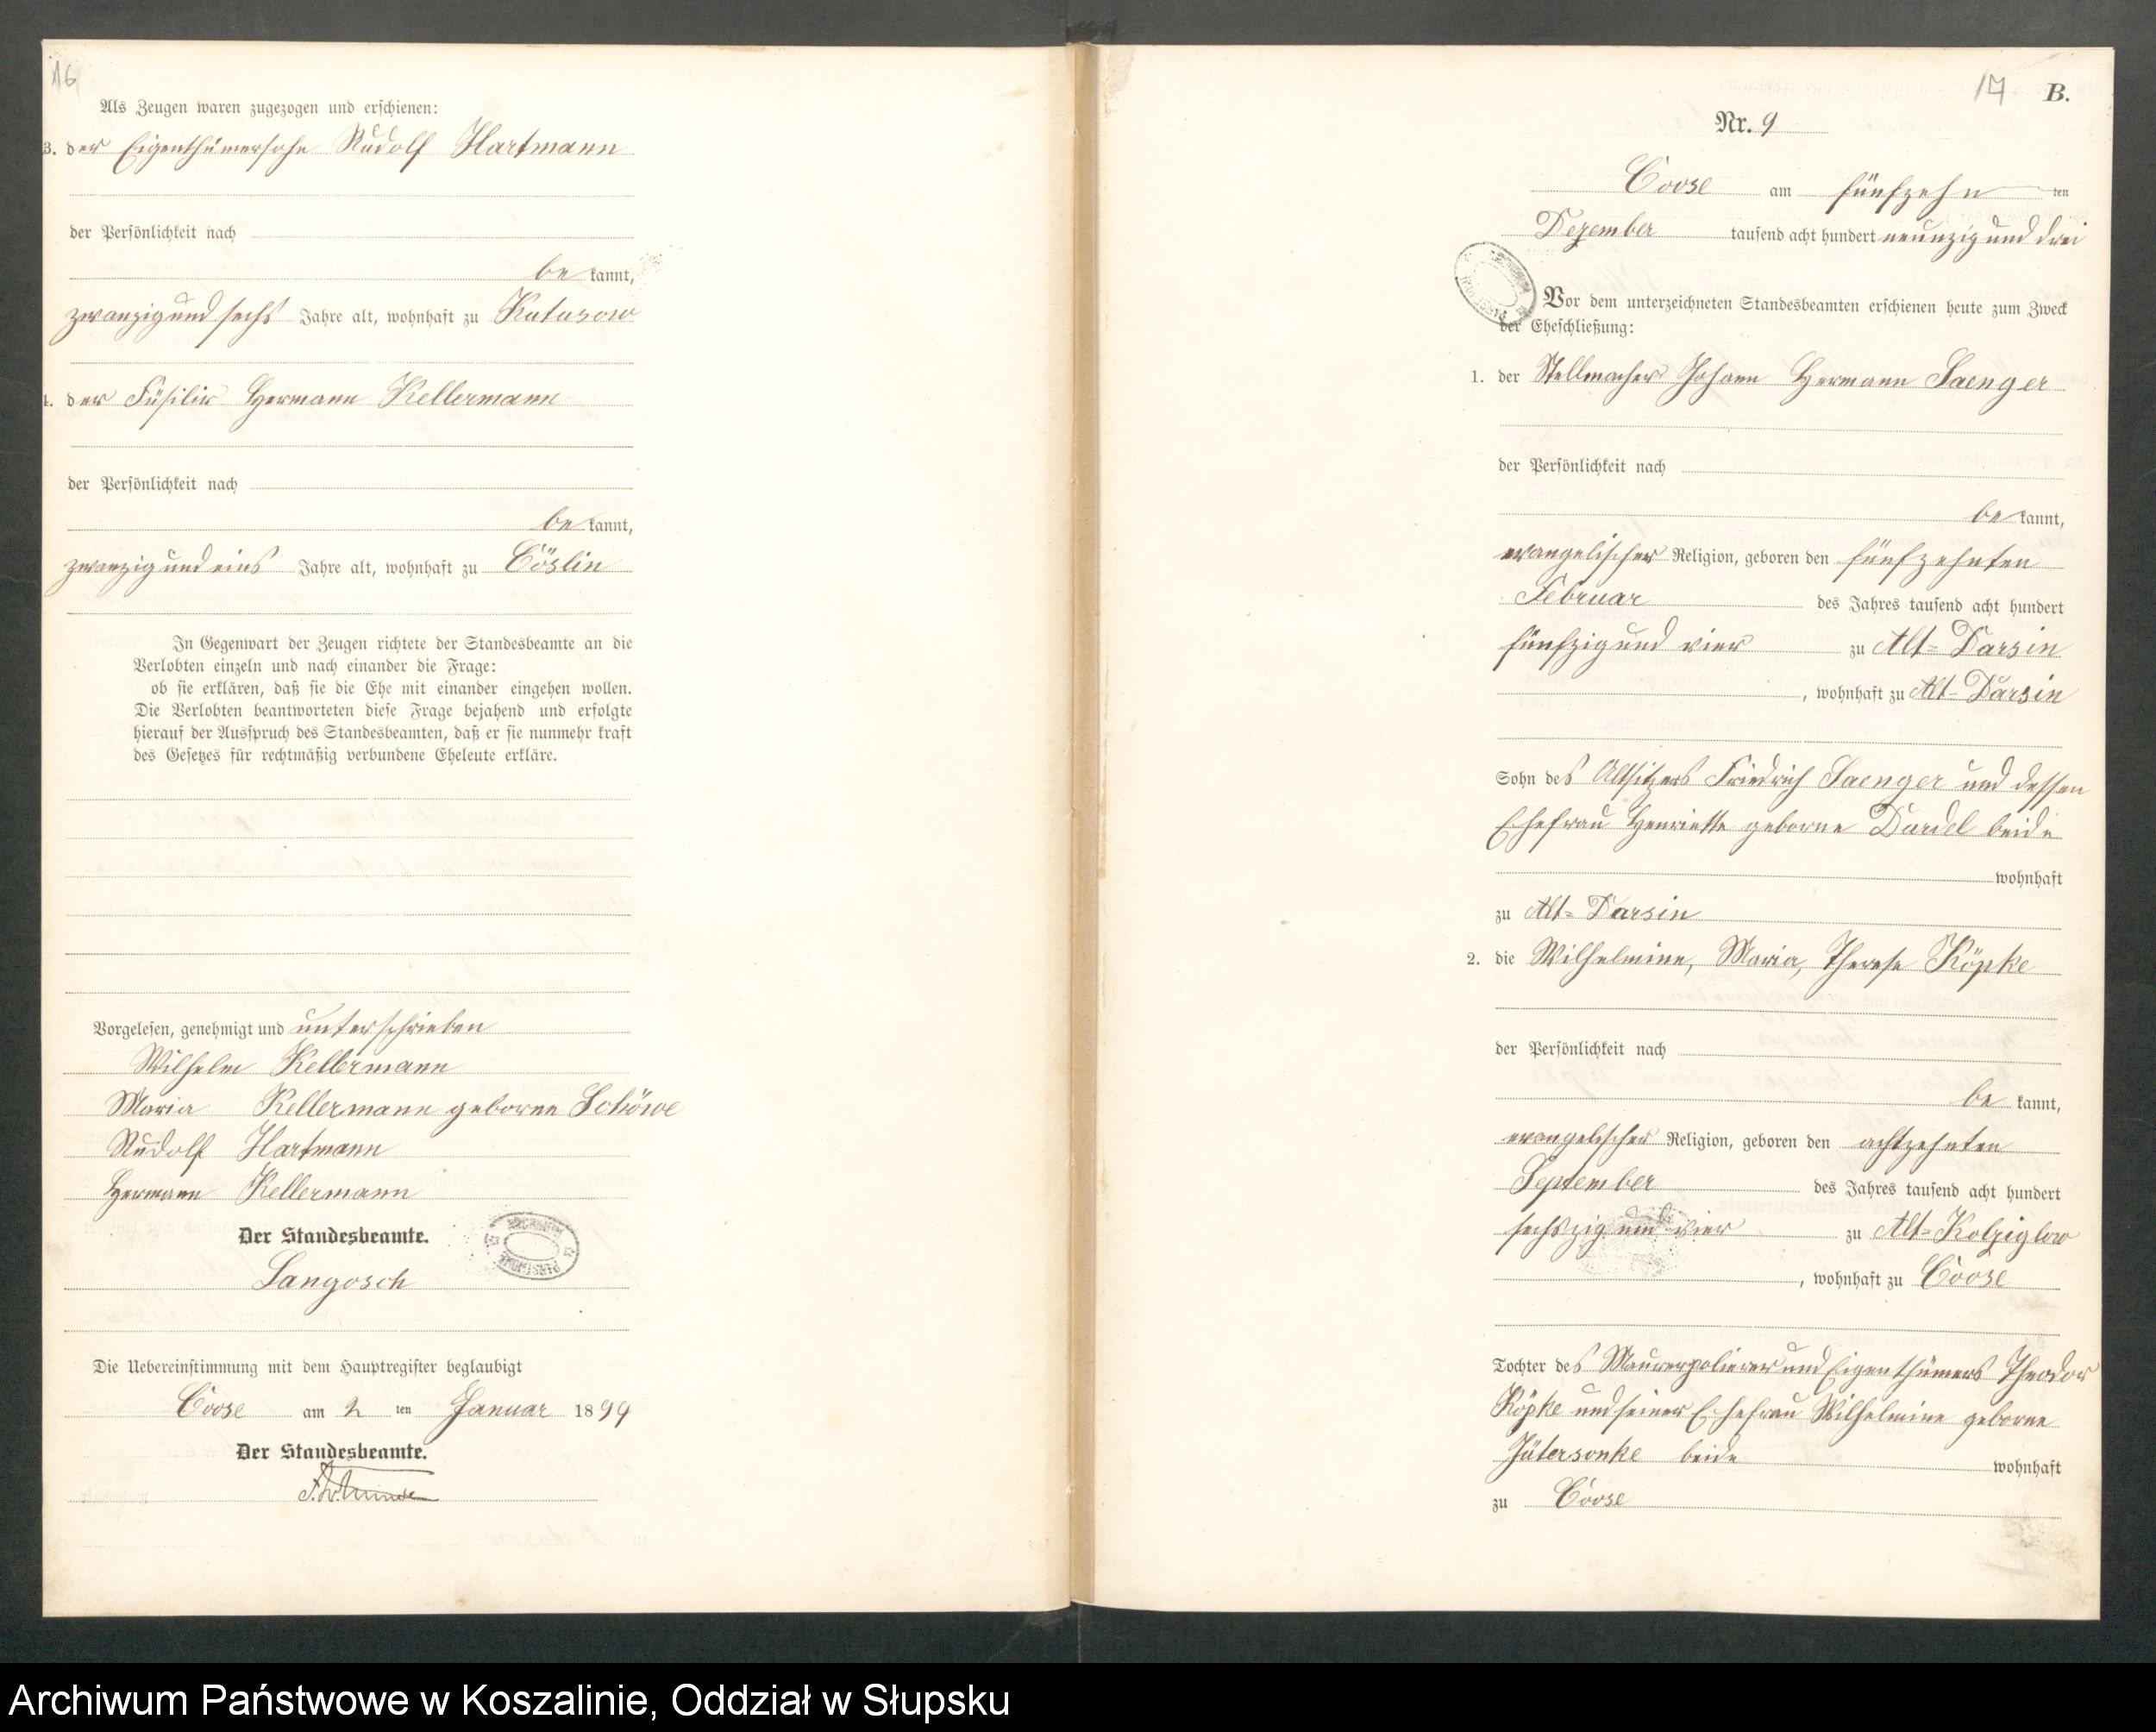 16
Als Zeugen waren zugezogen und erschienen:
3. der Eigenthümersohn Rudolf Hartmann
der Persönlichkeit nach
be kannt,
zwanzig und sechs Jahre alt, wohnhaft zu Kutusow
4. der Füsilir Hermann Kellermann
der Persönlichkeit nach
be kannt,
zwanzig und eins Jahre alt, wohnhaft zu Cöslin
In Gegenwart der Zeugen richtete der Standesbeamte an die
Verlobten einzeln und nach einander die Frage:
ob sie erklären, daß sie die Ehe mit einander eingehen wollen.
Die Verlobten beantworteten diese Frage bejahend und erfolgte
hierauf der Ausspruch des Standesbeamten, daß er sie nunmehr kraft
des Gesetzes für rechtmäßig verbundene Eheleute erkläre.
Vorgelesen, genehmigt und unterschrieben
Wilhelm Kellermann
Maria Kellermann geborne Schöwe
Rudolf Hartmann
Hermann Kellermann
Der Standesbeamte.
Langosch
Die Uebereinstimmung mit dem Hauptregister beglaubigt
Coose am 2 ten Januar 1894
Der Standesbeamte.
17 B.
Nr. 9
Coose am fünfzehn ten
Dezember tausend acht hundert neunzig und drei
Vor dem unterzeichneten Standesbeamten erschienen heute zum Zweck
der Eheschließung:
1. der Stellmacher Johann Hermann Saenger
der Persönlichkeit nach
be kannt,
evangelischer Religion, geboren den fünfzehnten
Februar des Jahres tausend acht hundert
fünfzig und vier zu Alt-Darsin
, wohnhaft zu Alt-Darsin
Sohn des Altsitzers Friedrich Saenger und dessen
Ehefrau Henriette geborne Dardel beide
wohnhaft
zu Alt-Darsin
2. die Wilhelmine, Maria, Therese Köpke
der Persönlichkeit nach
be kannt,
evangelischer Religion, geboren den achtzehnten
September des Jahres tausend acht hundert
sechszig und vier zu Alt-Kolziglow
, wohnhaft zu Coose
Tochter des Maurerpolierer und Eigenthümers Theodor
Köpke und seiner Ehefrau Wilhelmine geborne
Jütersonke beide wohnhaft
zu Coose
Archiwum Państwowe w Koszalinie, Oddział w Słupsku